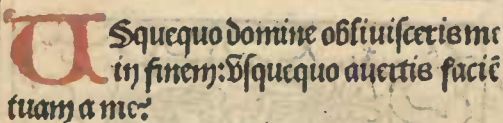 USquequo domine obliuiſceris me
in finem: Vſquequo auertis faciē
tuam a me?